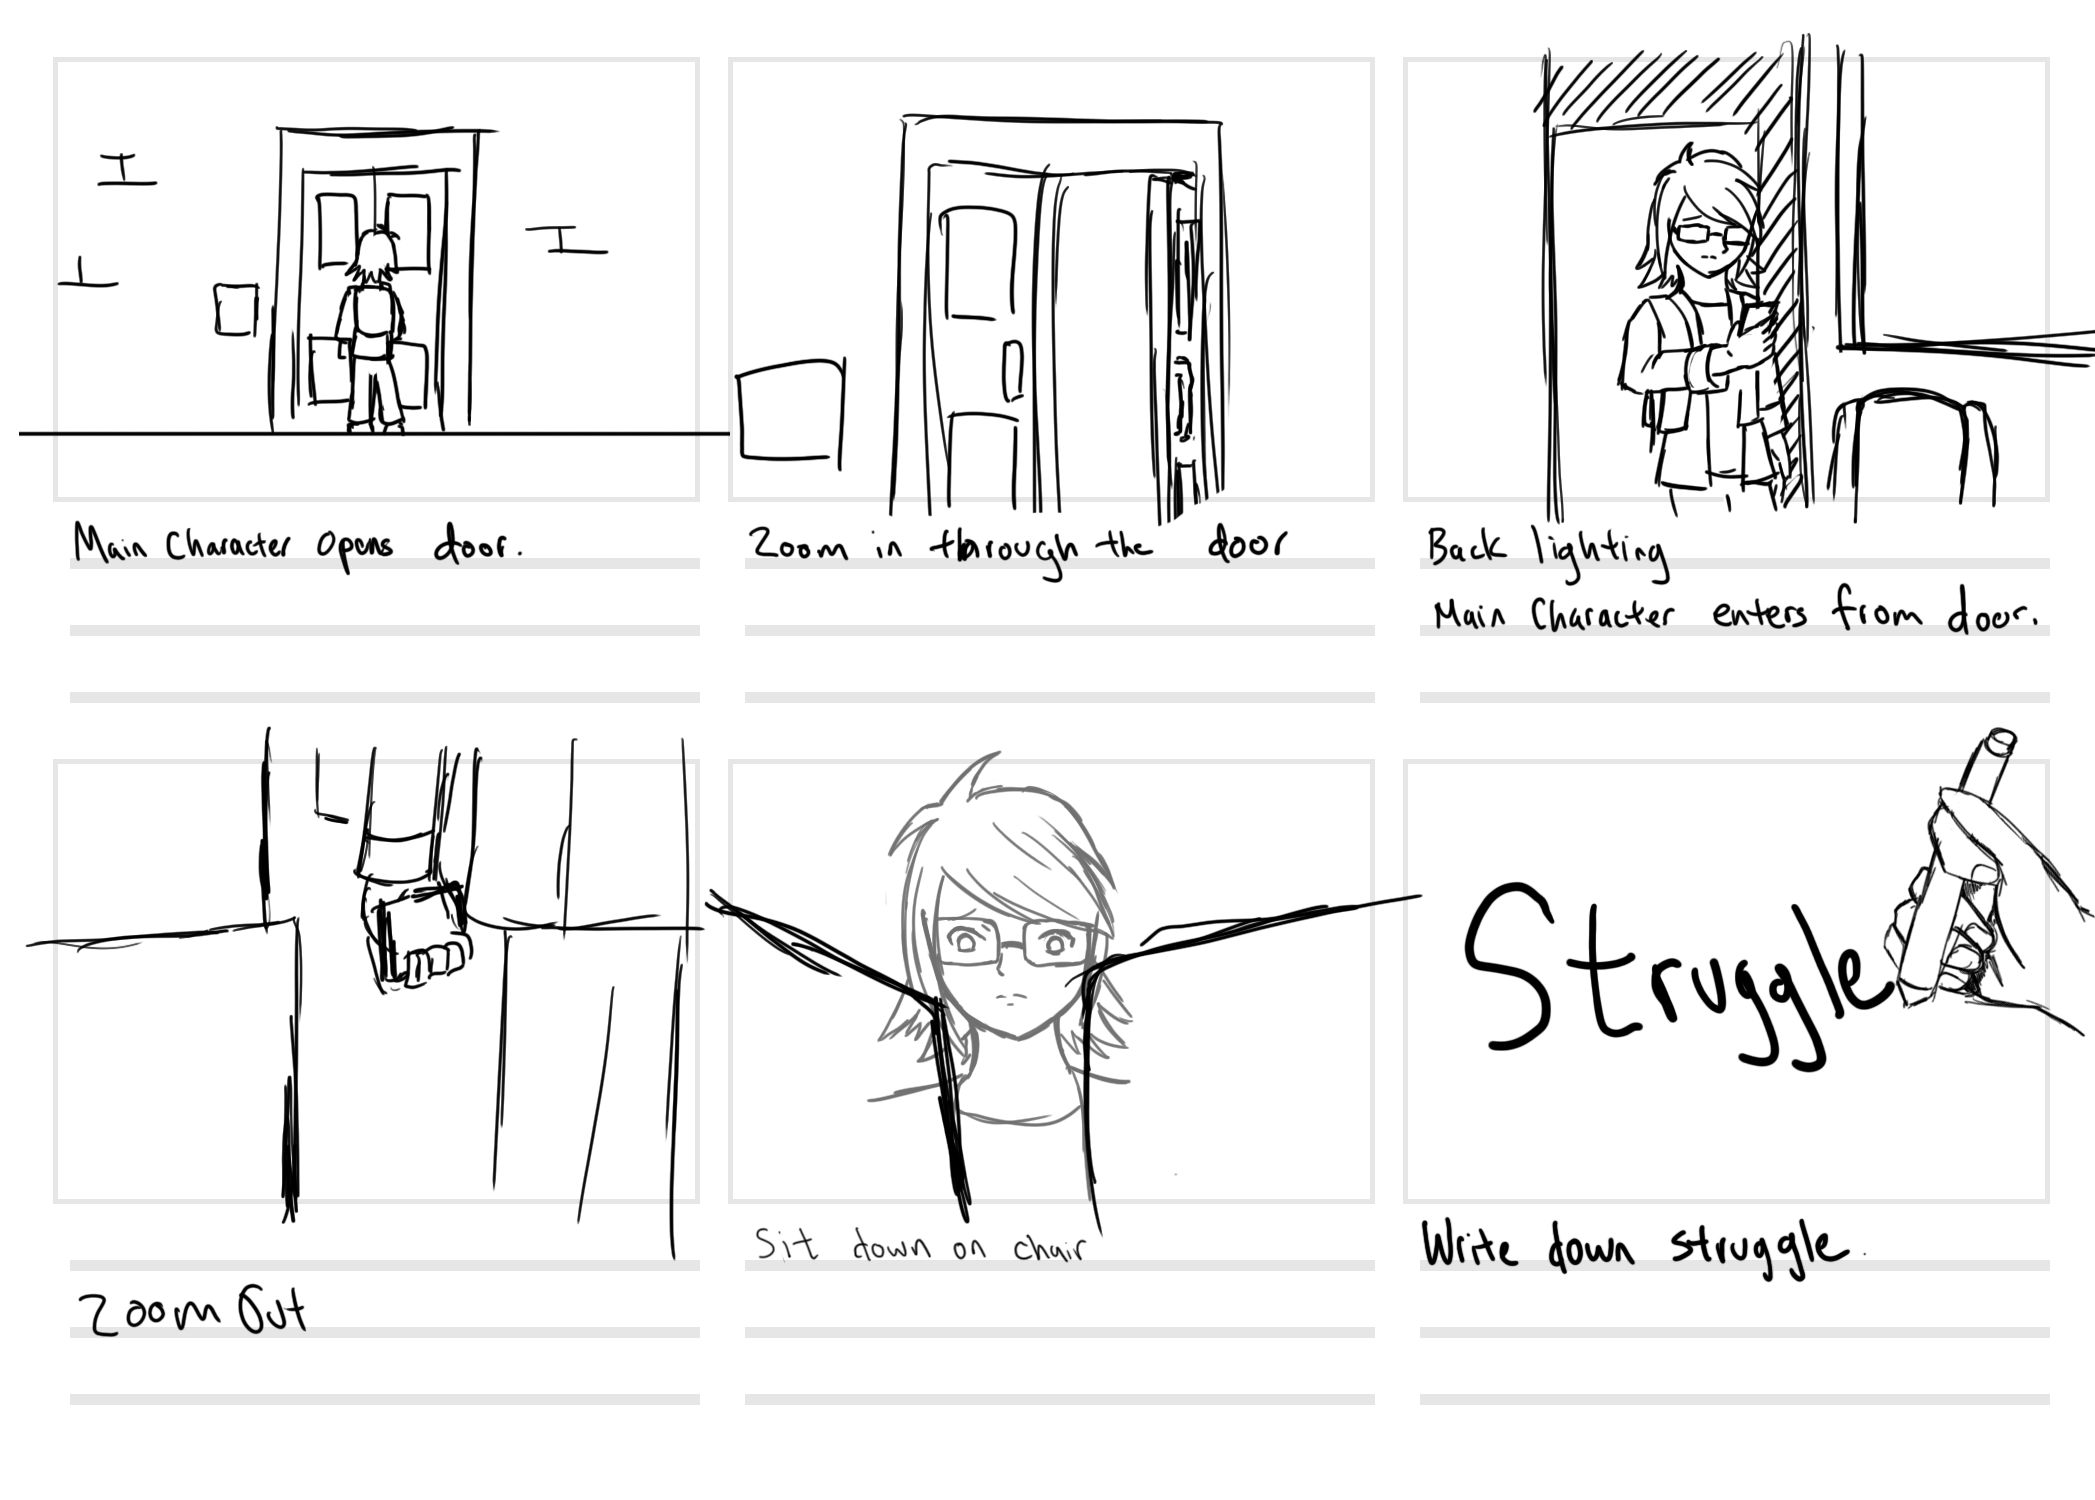 Main Character Opens door.
Zoom in through the door
Back lighting
Main Character enters from door.
Zoom Out
Sit down on chair
Struggle
Write down struggle.